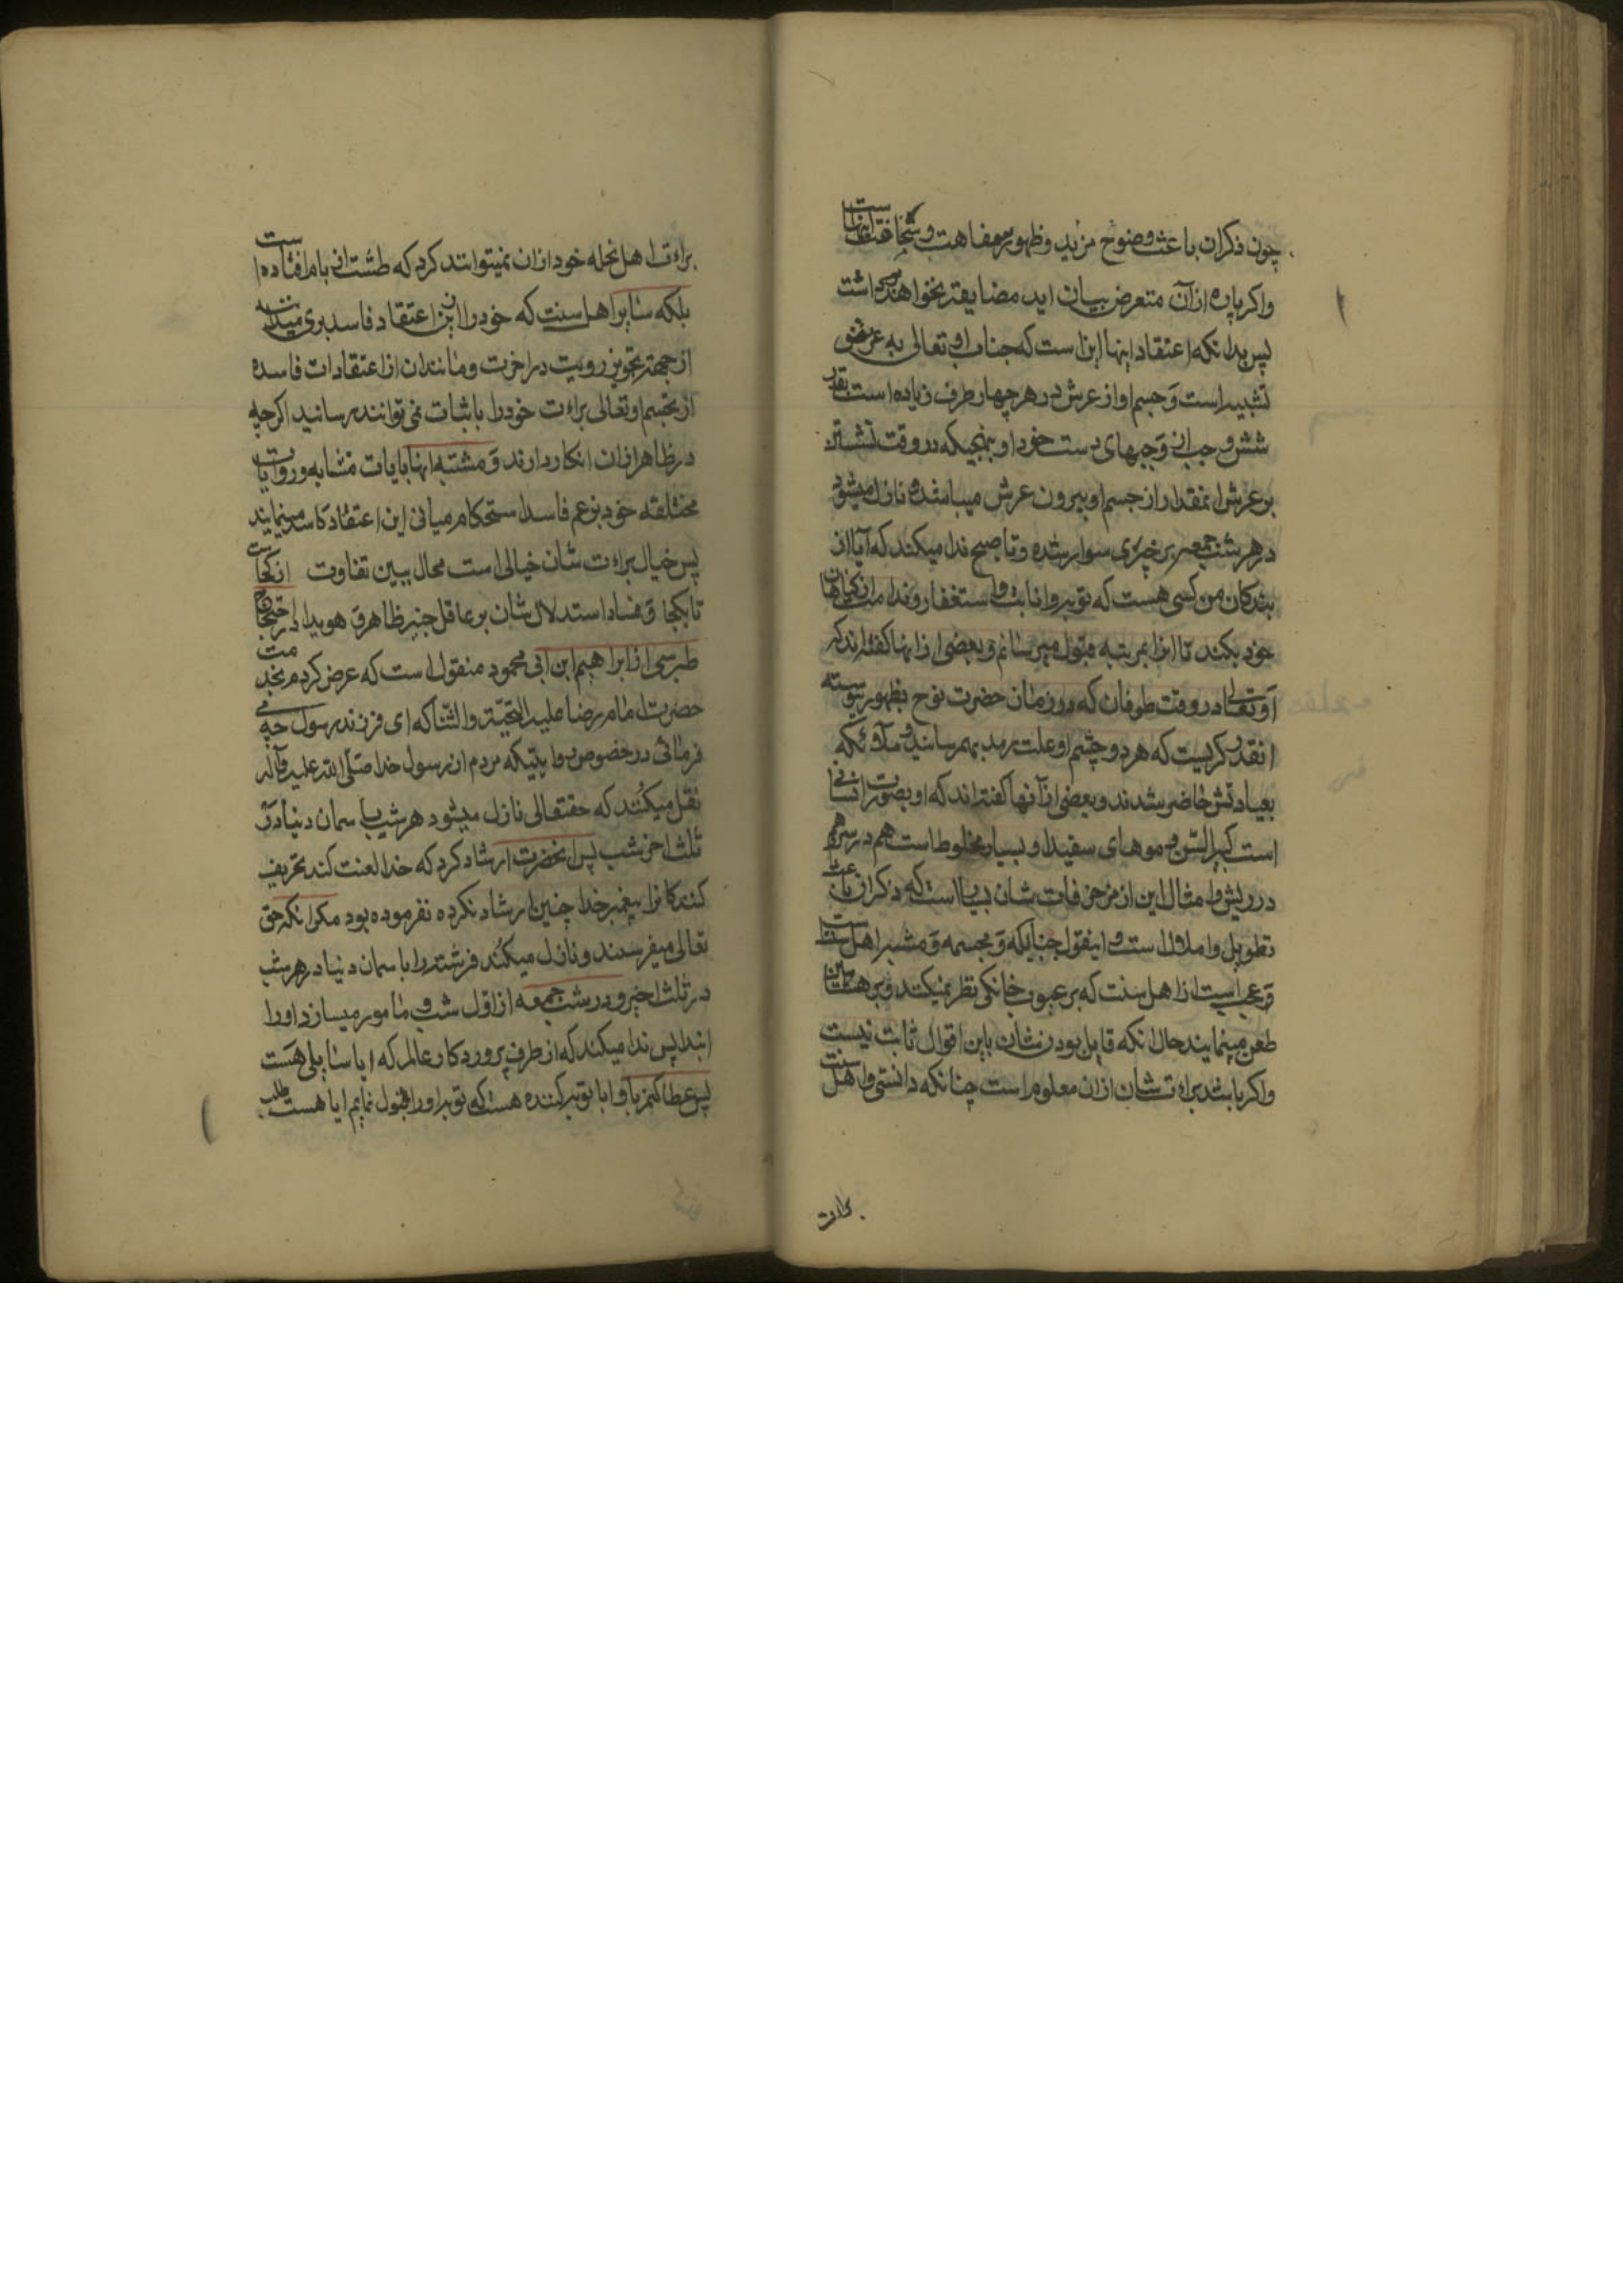 چون ذکر ان باعث وضوح مزید و ظهور سفاهت و سخافت انهاست
و اکر پاره از آن متعرض بیان اید مضایقه نخواهند داشت
پس بدانکه اعتقاد اینها این است که جناب او تعالی به عرش خود
است و جسم او از عرش در هر چهار طرف زیاده است بقدر
شش وجب از وجبهای دست خود او بنهجیکه در وقت نشستن
بر عرش انمقدار از جسم او بیرون عرش میباشد و نازل میشود
در هر شب جمعه بر خری سوار شده و تا صبح ندا میکند که آیا از
بندکان من کسی هست که توبه و انابت و استغفار و ندامت از کناهان
خود بکند تا انرا بمرتبه قبول میرسانم و بعضی از انها کفته اند که
او تعالی در وقت طوفان که در زمان حضرت نوح بظهور پیوسته
انقدر کریست که هر دو چشم او علت رمد بهم رسانید و ملائکه
بعیادتش حاضر شدند و بعضی از آنها کفته اند که او بصورت انسانی
است کبیر السن و موهای سفید او بسیار مخلوط است هم در سر هم
در ریش و امثال این از مزخرفات شان بسیار است که ذکر ان باعث
تطویل و املال است و اینقول حنابله و مجسمه و مشبه اهل سنت است
و عجب است از اهل سنت که بر عیوب خانکی نظر نمیکنند و بر هشامین
طعن مینمایند حال انکه قایل بودن شان باین اقوال ثابت نیست
و اکر باشد براءت شان از ان معلوم است چنانکه دانستی و اهل سنت
براءت
براءت اهل نحله خود از ان نمیتوانند کرد که طشت از بام افتاده است
بلکه سایر اهل سنت که خود را ازین اعتقاد فاسد بری میدانند
از جهة تجویز رویت در اخرت و مانند ان از اعتقادات فاسده
از تجسم او تعالی براءت خود را باثبات نمی توانند رسانید اکرچه
در ظاهر از ان انکار دارند و مشتبه انها بایات متشابه و روایات
مختلقه خود بزعم فاسد استحکام مبانی این اعتقاد کاسد مینمایند
پس خیال براءت شان خیالی است محال ببین تفاوت از کجاست
تا بکجا و فساد استدلال شان بر عاقل خبیر ظاهر و هویدا در احتجاج
طبرسی از ابراهیم ابن ابی محمود منقول است که عرض کردم بخدمت
حضرت امام رضا علیه التحیّة والثنا که ای فرزند رسول چه می
فرمائی در خصوص روایتیکه مردم از رسول خدا صلّی الله علیه وآله
نقل میکنند که حقتعالی نازل میشود هر شب باسمان دنیا در
ثلث اخر شب پس انحضرت ارشاد کرد که خدا لعنت کند تحریف
کنندکانرا پیغمبر خدا چنین ارشاد نکرده نفرموده بود مکر انکه حق
تعالی میفرستد و نازل میکند فرشته را باسمان دنیا در هر شب
در ثلث اخیر و در شب جمعه از اول شب و مامور میسازد او را
ابتدا پس ندا میکند که از طرف پروردکار عالم که ایا سایلی هست
پس عطا کنم باو ایا توبه کننده هست که توبه او را قبول نمایم ایا هست طلب